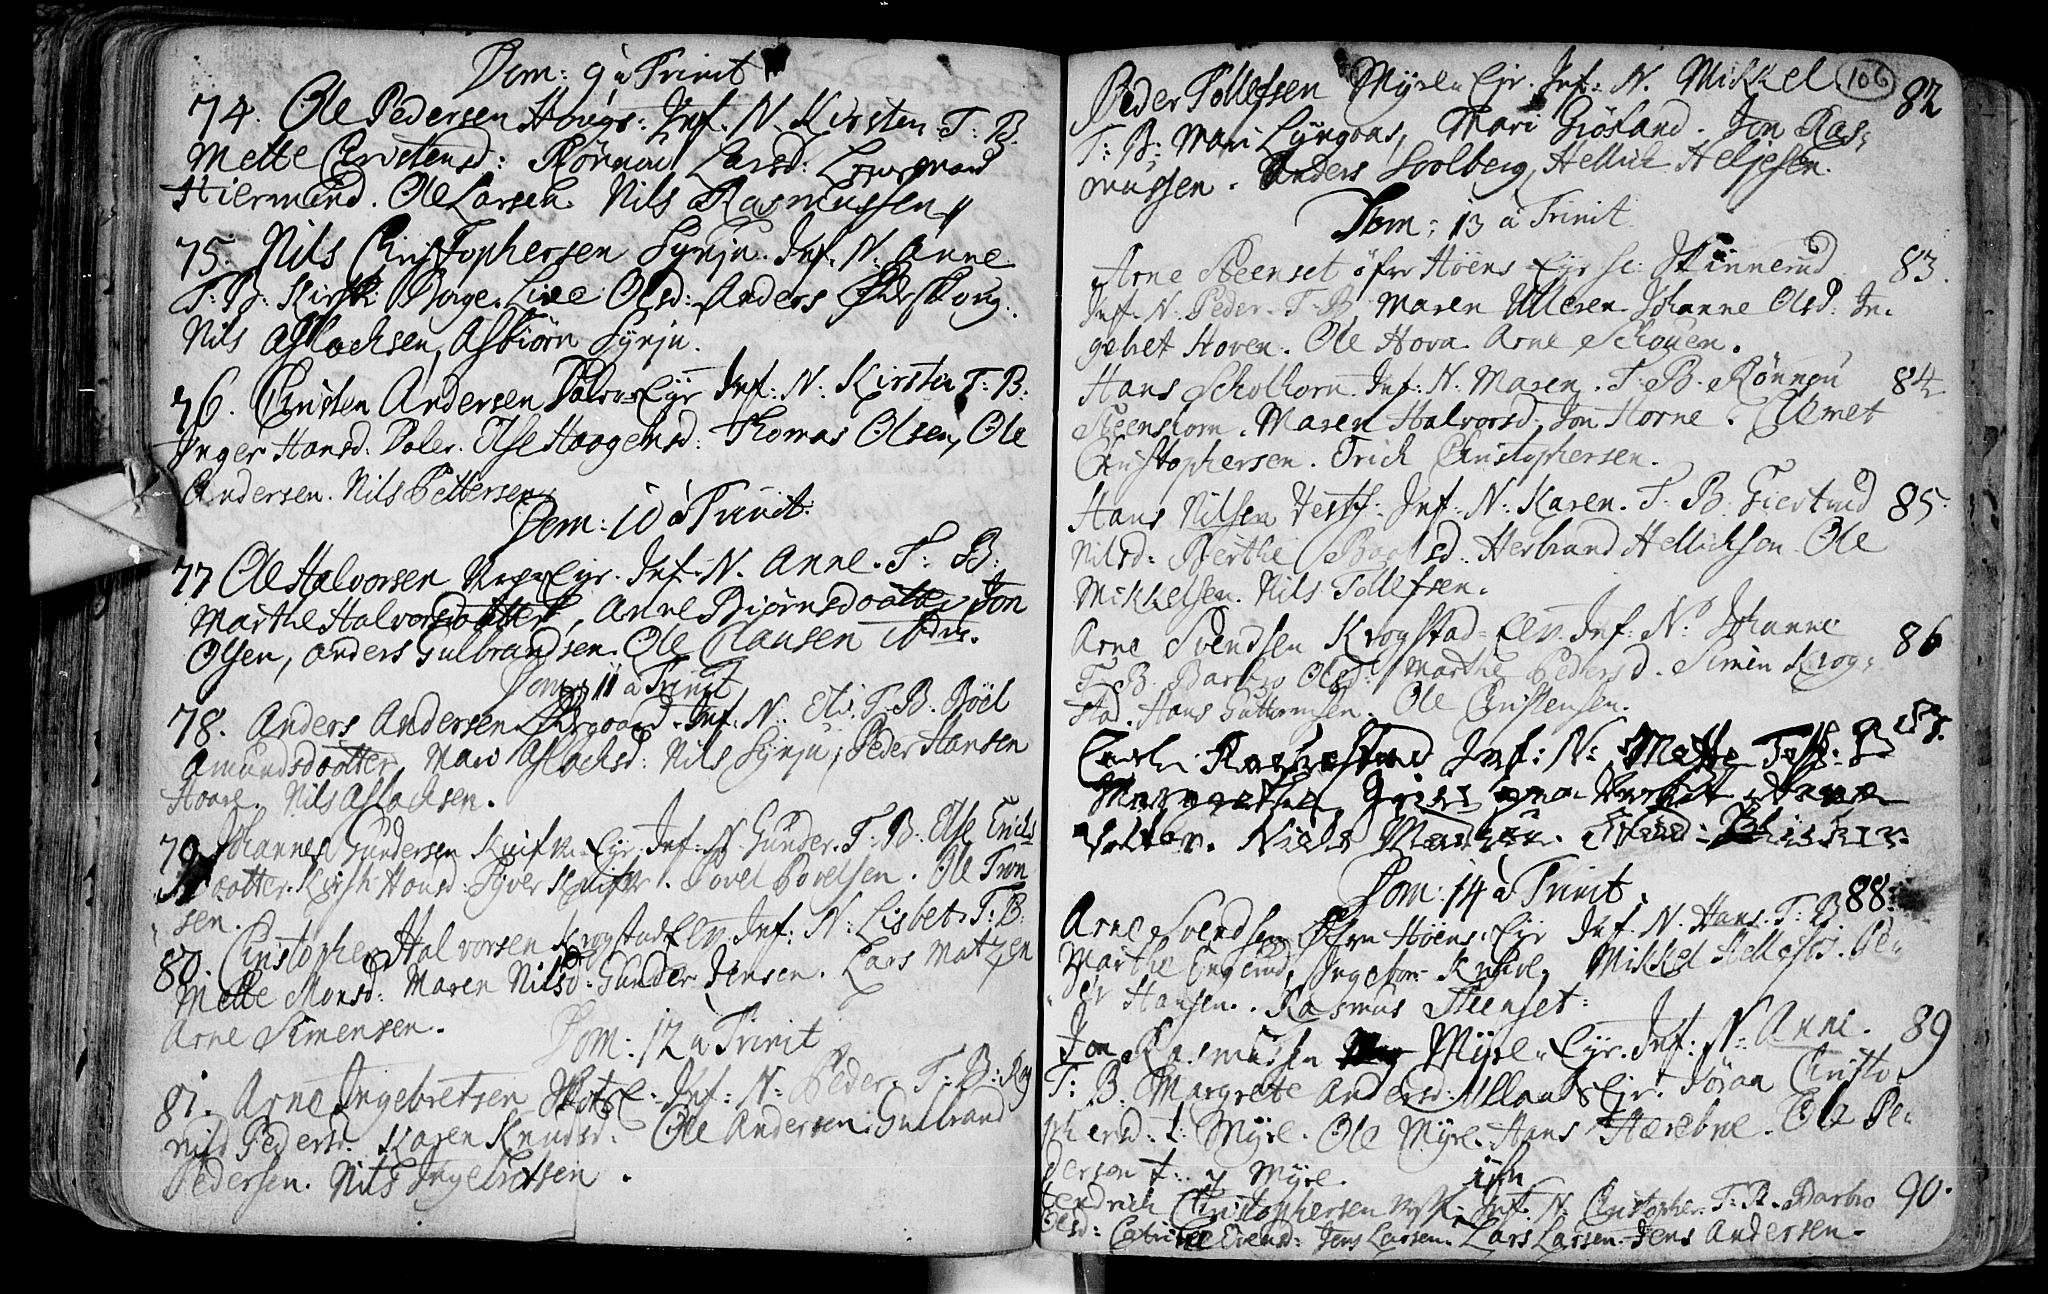 Dom: 9 à Trinit
74. Ole Pedersen Hougs: Inf. N. Kirsten. T: B.
Mette Christensd: Rönnau Larsd:
Hiermund. Ole Larsen. Nils Rasmussen
75. Nils Christophersen Synju. Inf. N. Anne
T: B: Kirst: Borge. Live Olsd: Anders
Nils Aslachsen, Asbiörn Synju.
76. Christen Andersen Eyr Inf: N: Kirsten T: B:
Inger Hansd. Doler. Else Haagensd: Thomas Olsen, Ole
Andersen. Nils Pettersen.
Dom: 10 à Trinit:
77 Ole Halvorsen Eyr. Inf. N. Anne. T: B:
Marthe Halvorsdotter, Anne Biörnsdootter, Jon
Olsen, Anders Gulbrandsen. Ole Clausen
Dom: 11 à Trinit
78. Anders Andersen Inf: N: Eli. T: B. Böel
Amundsdootter, Mari Aslachsd: Nils Synju, Peder Hansen
Hoare. Nils Aslachsen.
79. Johannes Gundersen Eyr. Inf. N. Gunder. T: B: Else Erichs
dootter. Kirst: Hansd: Syver Povel Povelsen. Ole Tron
sen.
80. Christopher Halvorsen Krogstad Elv. Inf: N: Lisbet. T: B:
Mette Monsd: Maren Nilsd: Gunder Jensen. Lars Matzen
Arne Simensen.
Dom: 12 à Trinit
81. Arne Ingebretsen Inf: N: Peder. T: B: Rag
nild Pedersd. Karen Knudsd: Ole Andersen. Gulbrand
Pedersen. Nils Ingebretsen.
106
Peder Tollefsen Myre Eyr. Inf: N. Mikkel. 82
T: B: Mari Lyngaas, Mari Giösland. Jon Ras-
mussen. Anders Soolberg, Hellich Heljesen.
Dom: 13 à Trinit
Arne Steenset öfre Höens Eyr 83.
Inf. N. Peder. T: B. Maren Ulleren. Johanne Olsd: In-
gebret Hoven. Ole Hova. Arne Schouen.
Hans Scholhorn. Inf: N. Maren. T. B. Rönnau 84
Steenshorn. Maren Halvorsd. Jon Horne.
Christophersen. Erich Christophersen.
Hans Nilsen Vestf. Inf: N: Karen. T. B. Giertrud 85.
Nilsd: Berthe Herbrand Hellichson. Ole
Mikkelsen. Nils Tollefsen.
Arne Svendsen Krogstad Elv. Inf: N: Johanne 86
T. B. Barbro Olsd: Marthe Pedersd. Simen Krog-
stad. Hans Guttormsen. Ole Christensen.
Inf: N: Mette 87.
Margrethe
Niels
Dom: 14 à Trinit 88.
Arne Svendsen Öfre Höens Eyr Inf. N. Hans. T: B
Marthe Engerud, Mikkel Pe-
der Hansen. Rasmus Steenset:
Jon Rasmussen Myre Eyr. Inf: N: Anne. 89
T: B. Margrete Andersd: Eyr. Jöran Christo-
phersd: t: Myre. Ole Myre. Hans Ole Pe-
derson t: Myre.
Hendrich Christophersen Inf: N: Christopher. T: B. Barbro 90.
Olsd: Evensd: Jens Larsen. Lars Larsen. Jens Andersen.